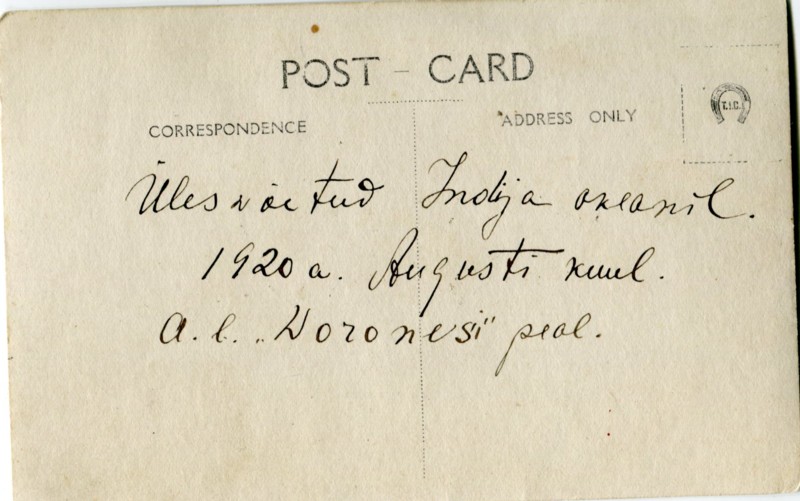 POST - CARD
CORRESPONDENCE
ADDRESS ONLY
T.I.C.
Ülesvõetud Indija okeanil.
1920 a. Augusti kuul.
A. l. „Woronesi" peal.